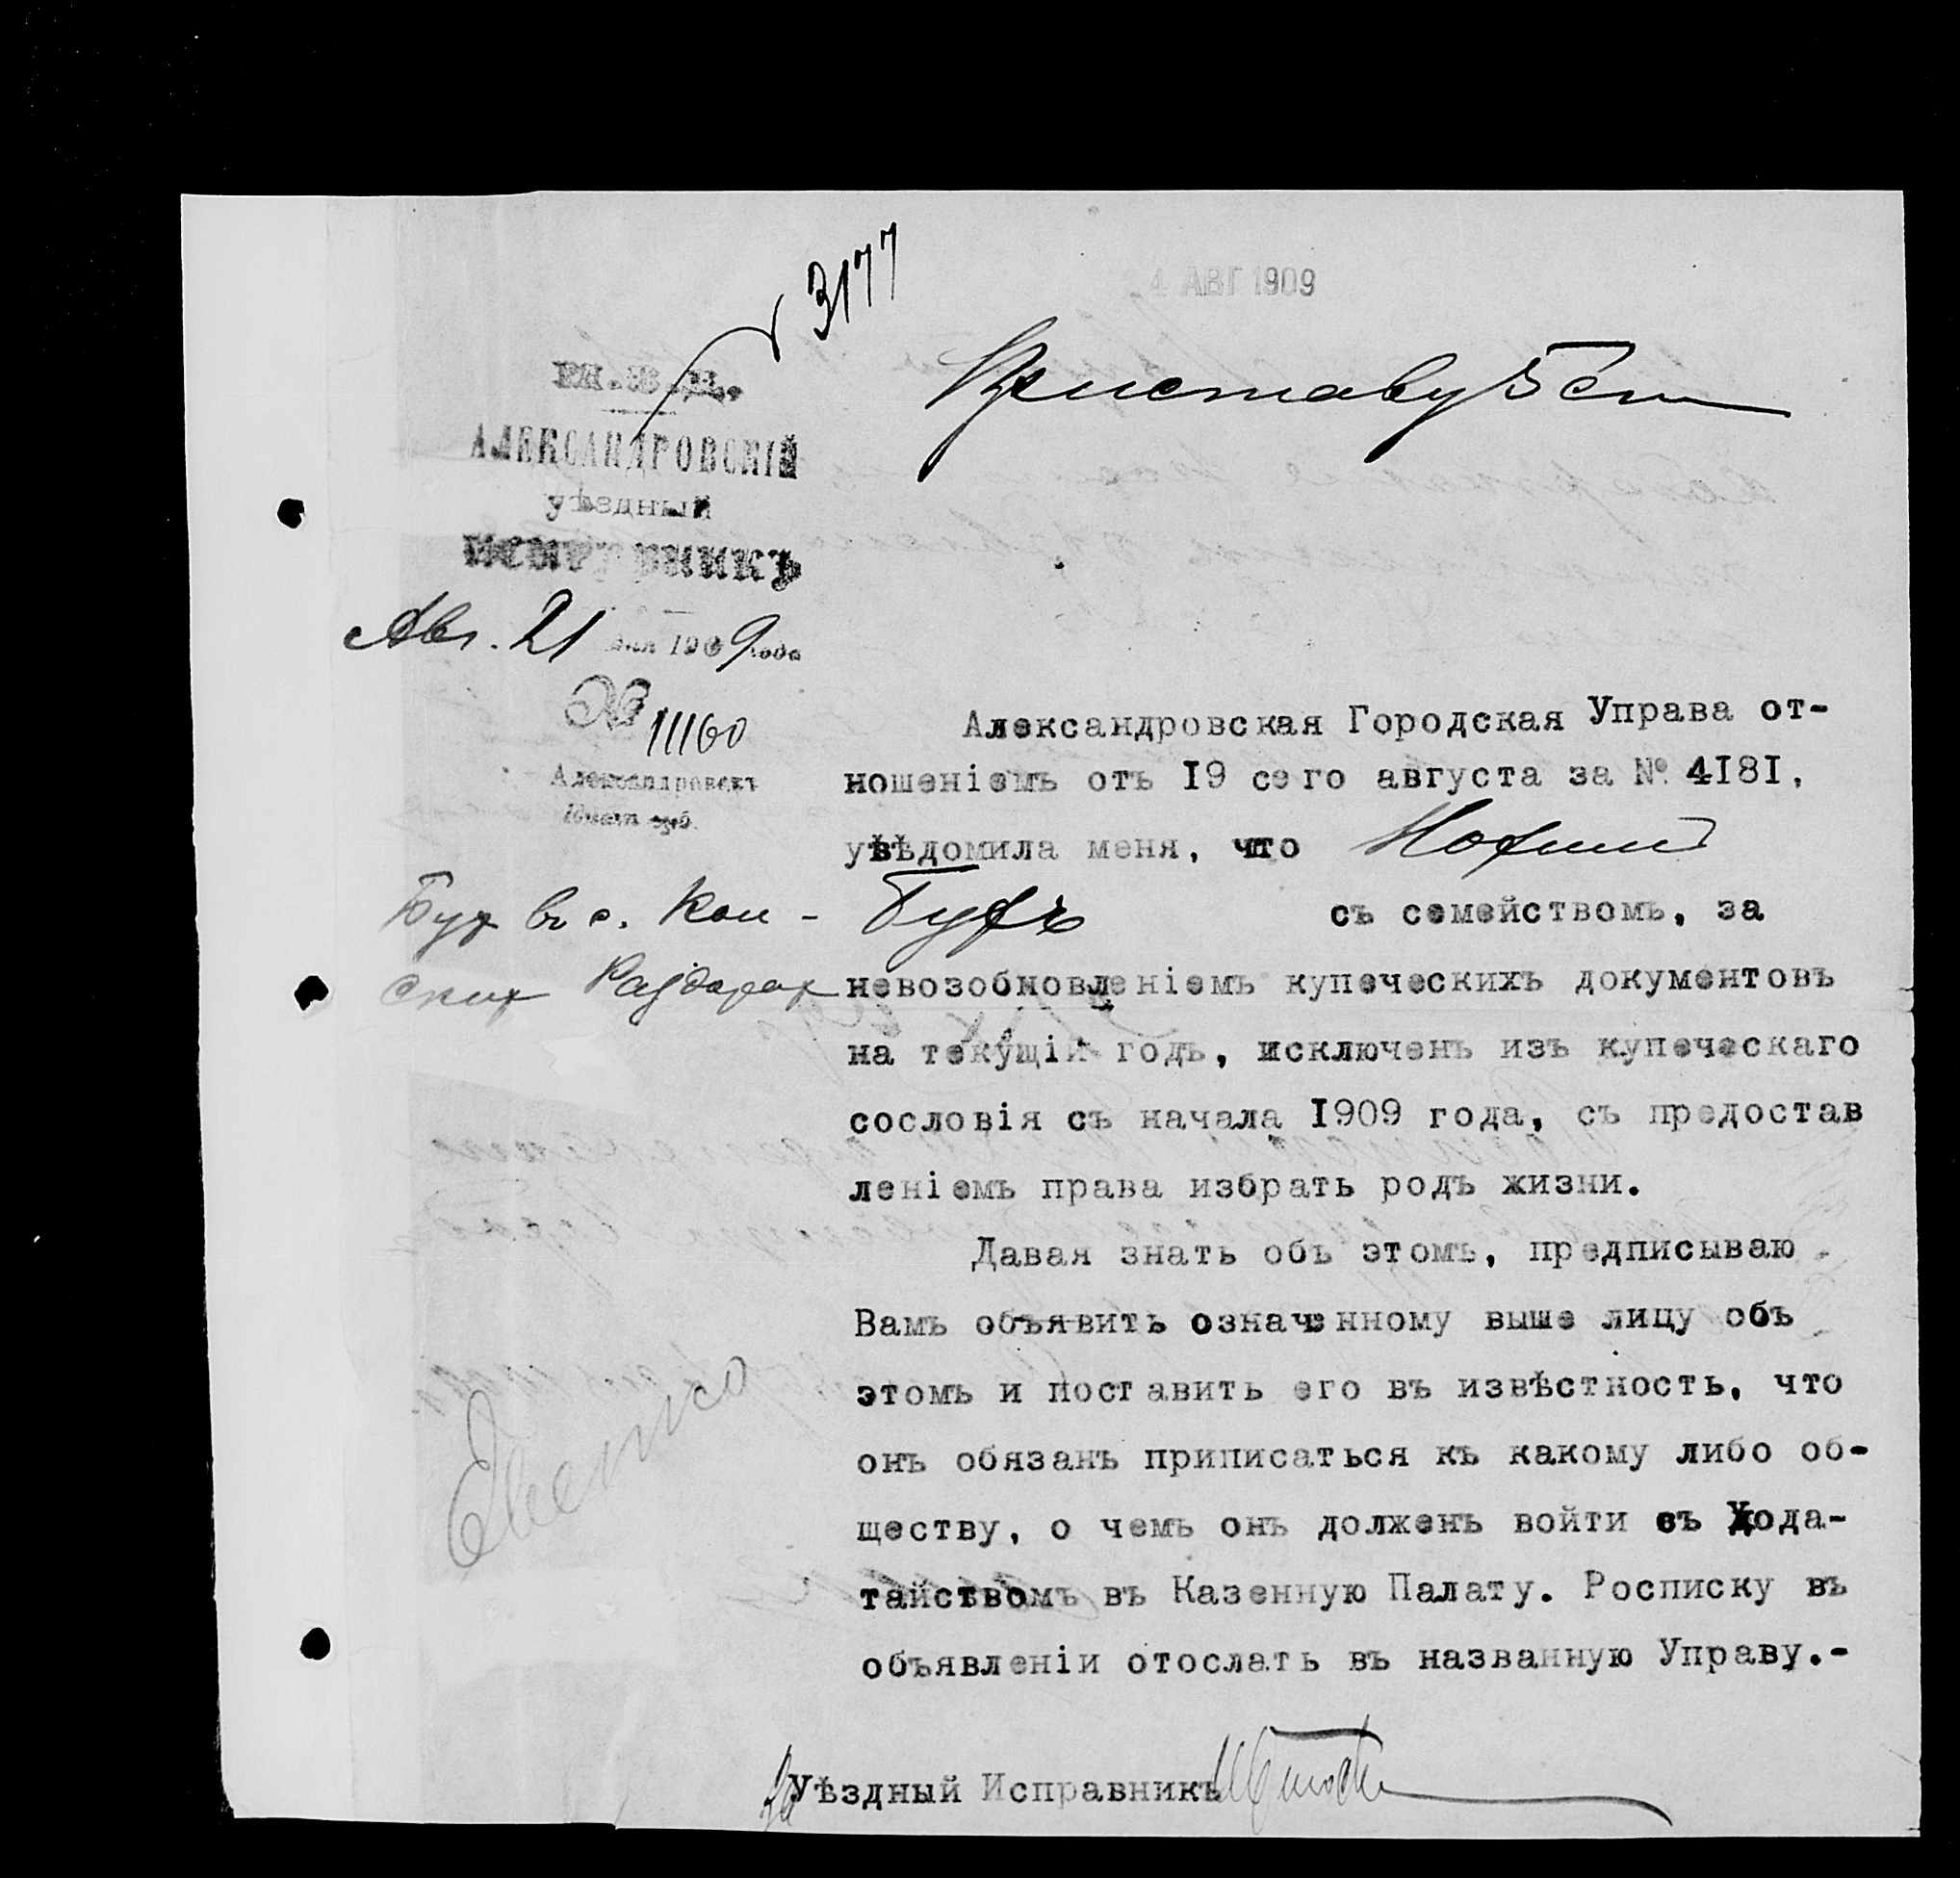 3177
4 АВГ 1909
Приставу 5 ст
М.В.Д.
АЛЕКСАНДРОВСКІЙ
уѣздный
ИСПРАВНИКЪ
Авг. 21 дня 1909 года
№ 11160
Александровскъ
Екат. губ.
Александровская Городская Управа от-
ношеніемъ отъ 19 сего августа за № 4181,
увѣдомила меня, что
съ семействомъ, за
Буд въ с. Кон-
ских Раздорах
невозобновленіемъ купеческихъ документовъ
на текущій годъ, исключенъ изъ купеческаго
сословія съ начала 1909 года, съ предостав
леніемъ права избрать родъ жизни.
Давая знать объ этомъ, предписываю
Вамъ объявить означенному выше лицу объ
этомъ и поставить его въ извѣстность, что
онъ обязанъ приписаться къ какому либо об-
ществу, о чемъ онъ долженъ войти съ хода-
тайствомъ въ Казенную Палату. Росписку въ
объявленіи отослать въ названную Управу.-
За Уѣздный Исправникъ